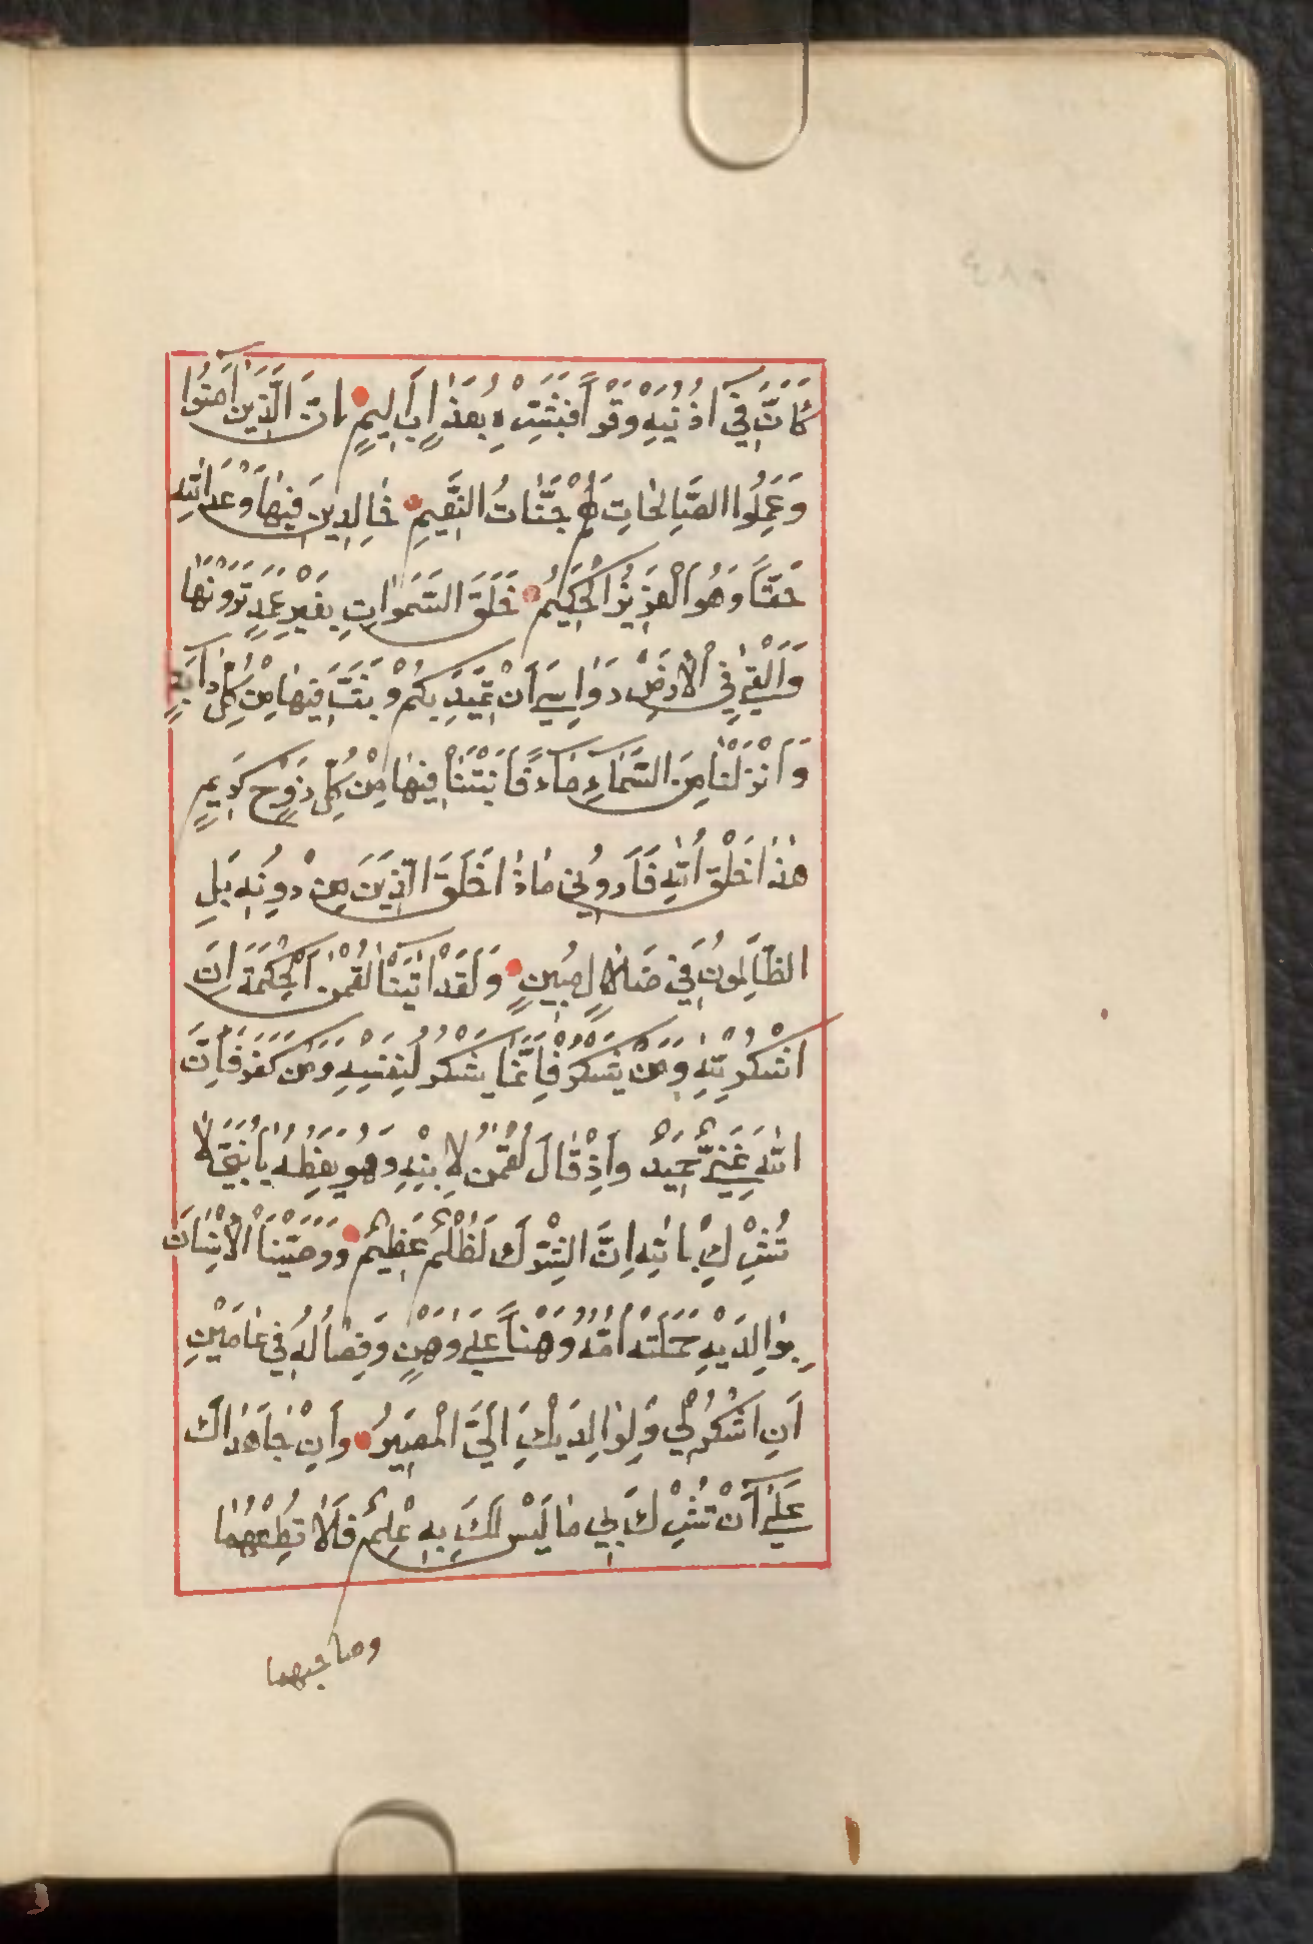 كَاَنَّ فِي اُذُنَيْهِ وَقْراً فَبَشِّرْهُ بِعَذَابٍ اَلِيمٍ اِنَّ الَّذِينَ اٰمَنُوا
وَعَمِلُوا الصَّالِحَاتِ لَهُمْ جَنَّاتُ النَّعِيمِ خَالِدِينَ فِيهَا وَعْدَ اللّٰهِ
حَقّاً وَهُوَ الْعَزِيزُ الْحَكِيمُ خَلَقَ السَّمٰوَاتِ بِغَيْرِ عَمَدٍ تَرَوْنَهَا
وَاَلْقٰى فِي الْاَرْضِ رَوَاسِيَ اَنْ تَمِيدَ بِكُمْ وَبَثَّ فِيهَا مِنْ كُلِّ دَابَّةٍ
وَاَنْزَلْنَا مِنَ السَّمَاءِ مَاءً فَاَنْبَتْنَا فِيهَا مِنْ كُلِّ زَوْجٍ كَرِيمٍ
هٰذَا خَلْقُ اللّٰهِ فَاَرُونِي مَاذَا خَلَقَ الَّذِينَ مِنْ دُونِهِ بَلِ
الظَّالِمُونَ فِي ضَلَالٍ مُبِينٍ وَلَقَدْ اٰتَيْنَا لُقْمٰنَ الْحِكْمَةَ اَنِ
اشْكُرْ لِلّٰهِ وَمَنْ يَشْكُرْ فَاِنَّمَا يَشْكُرُ لِنَفْسِهِ وَمَنْ كَفَرَ فَاِنَّ
اللّٰهَ غَنِيٌّ حَمِيدٌ وَاِذْ قَالَ لُقْمٰنُ لِابْنِهِ وَهُوَ يَعِظُهُ يَا بُنَيَّ لَا
تُشْرِكْ بِاللّٰهِ اِنَّ الشِّرْكَ لَظُلْمٌ عَظِيمٌ وَوَصَّيْنَا الْاِنْسَانَ
بِوَالِدَيْهِ حَمَلَتْهُ اُمُّهُ وَهْناً عَلٰى وَهْنٍ وَفِصَالُهُ فِي عَامَيْنِ
اَنِ اشْكُرْ لِي وَلِوَالِدَيْكَ اِلَيَّ الْمَصِيرُ وَاِنْ جَاهَدَاكَ
عَلٰى اَنْ تُشْرِكَ بِي مَا لَيْسَ لَكَ بِهِ عِلْمٌ فَلَا تُطِعْهُمَا
وصاحبهما